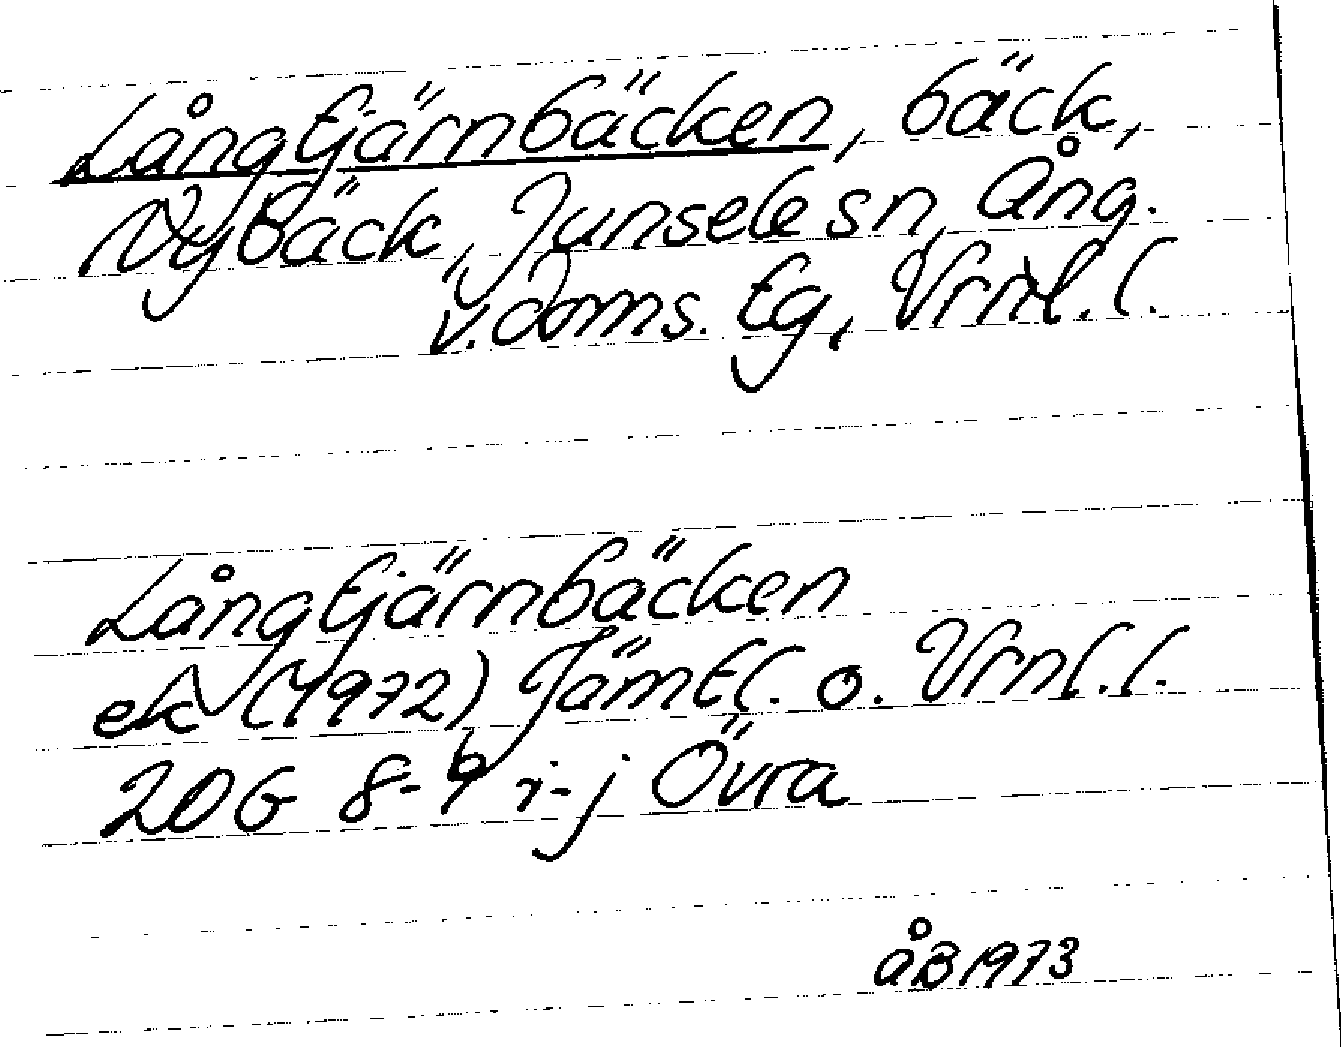 Långtjärnbäcken, bäck,
Nybäck, Junsele sn, Ång.
v. doms. tg, Vrnl. l.
Långtjärnbäcken
ek (1972) Jämtl. o. Vrnl. l.
20G 8-9 i-j Övra
åB 1973